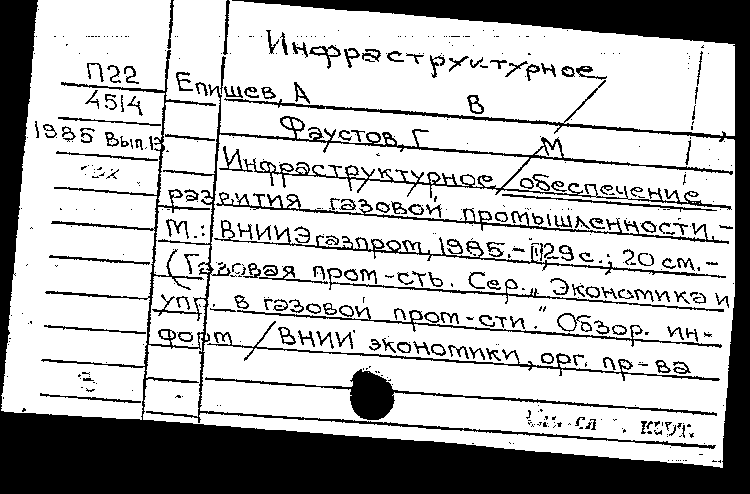 Инфраструктурное
П22
4514
1985 Вып.13.
Епишев, А В
Фаустов, Г М
Инфраструктурное обеспечение
развития газовой промышленности.-
М.: ВНИИЭгазпром, 1985.- 29 с.; 20 см.-
(Газовая пром-сть. Сер. „Экономика и
упр. в газовой пром-сти." Обзор. ин-
форм / ВНИИ экономики, орг. пр-ва
См. сл карт.